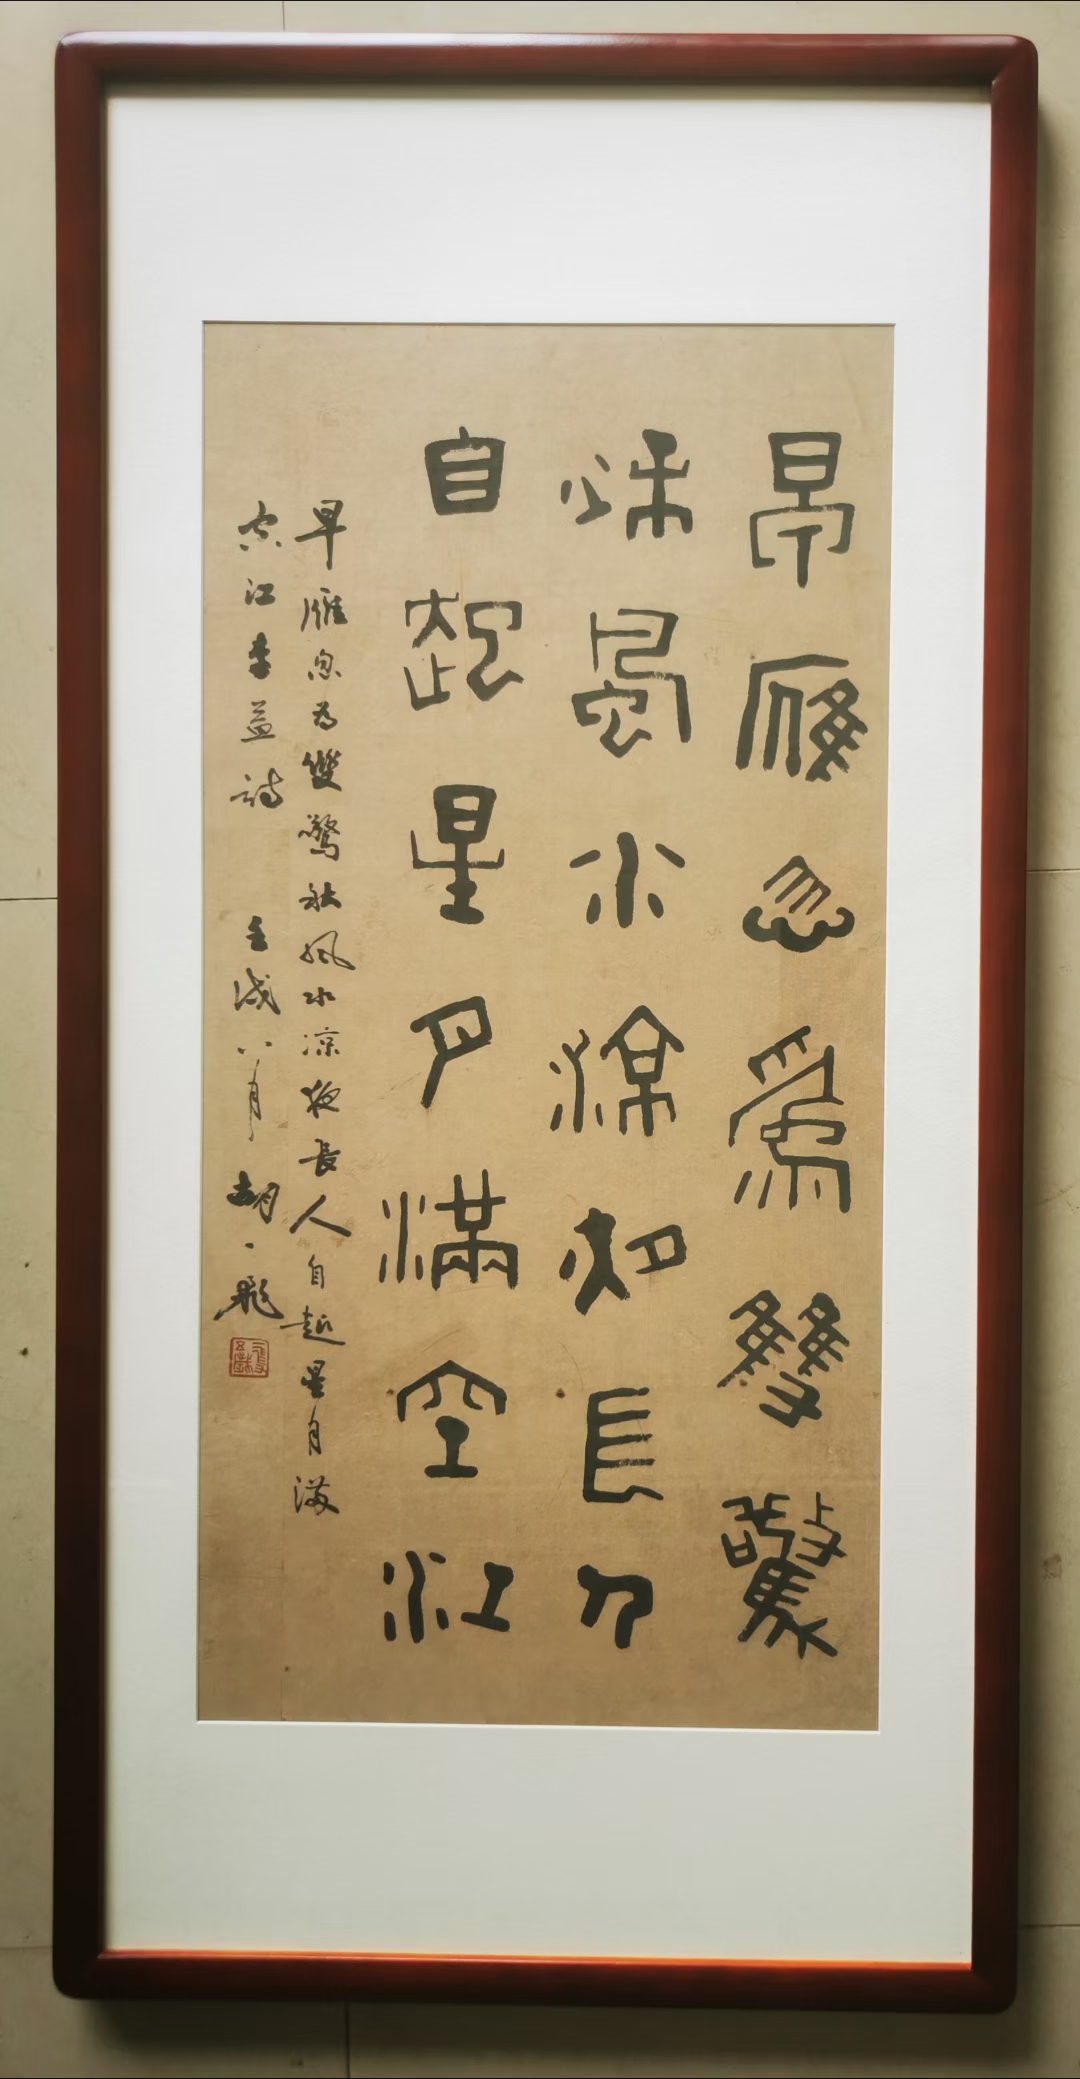 早雁忽爲雙驚
秋風水涼夜長人
自起星月滿空江
早雁忽为雙驚秋風水涼夜長人自起星月滿
空江李益詩 壬戌八月 胡一飛